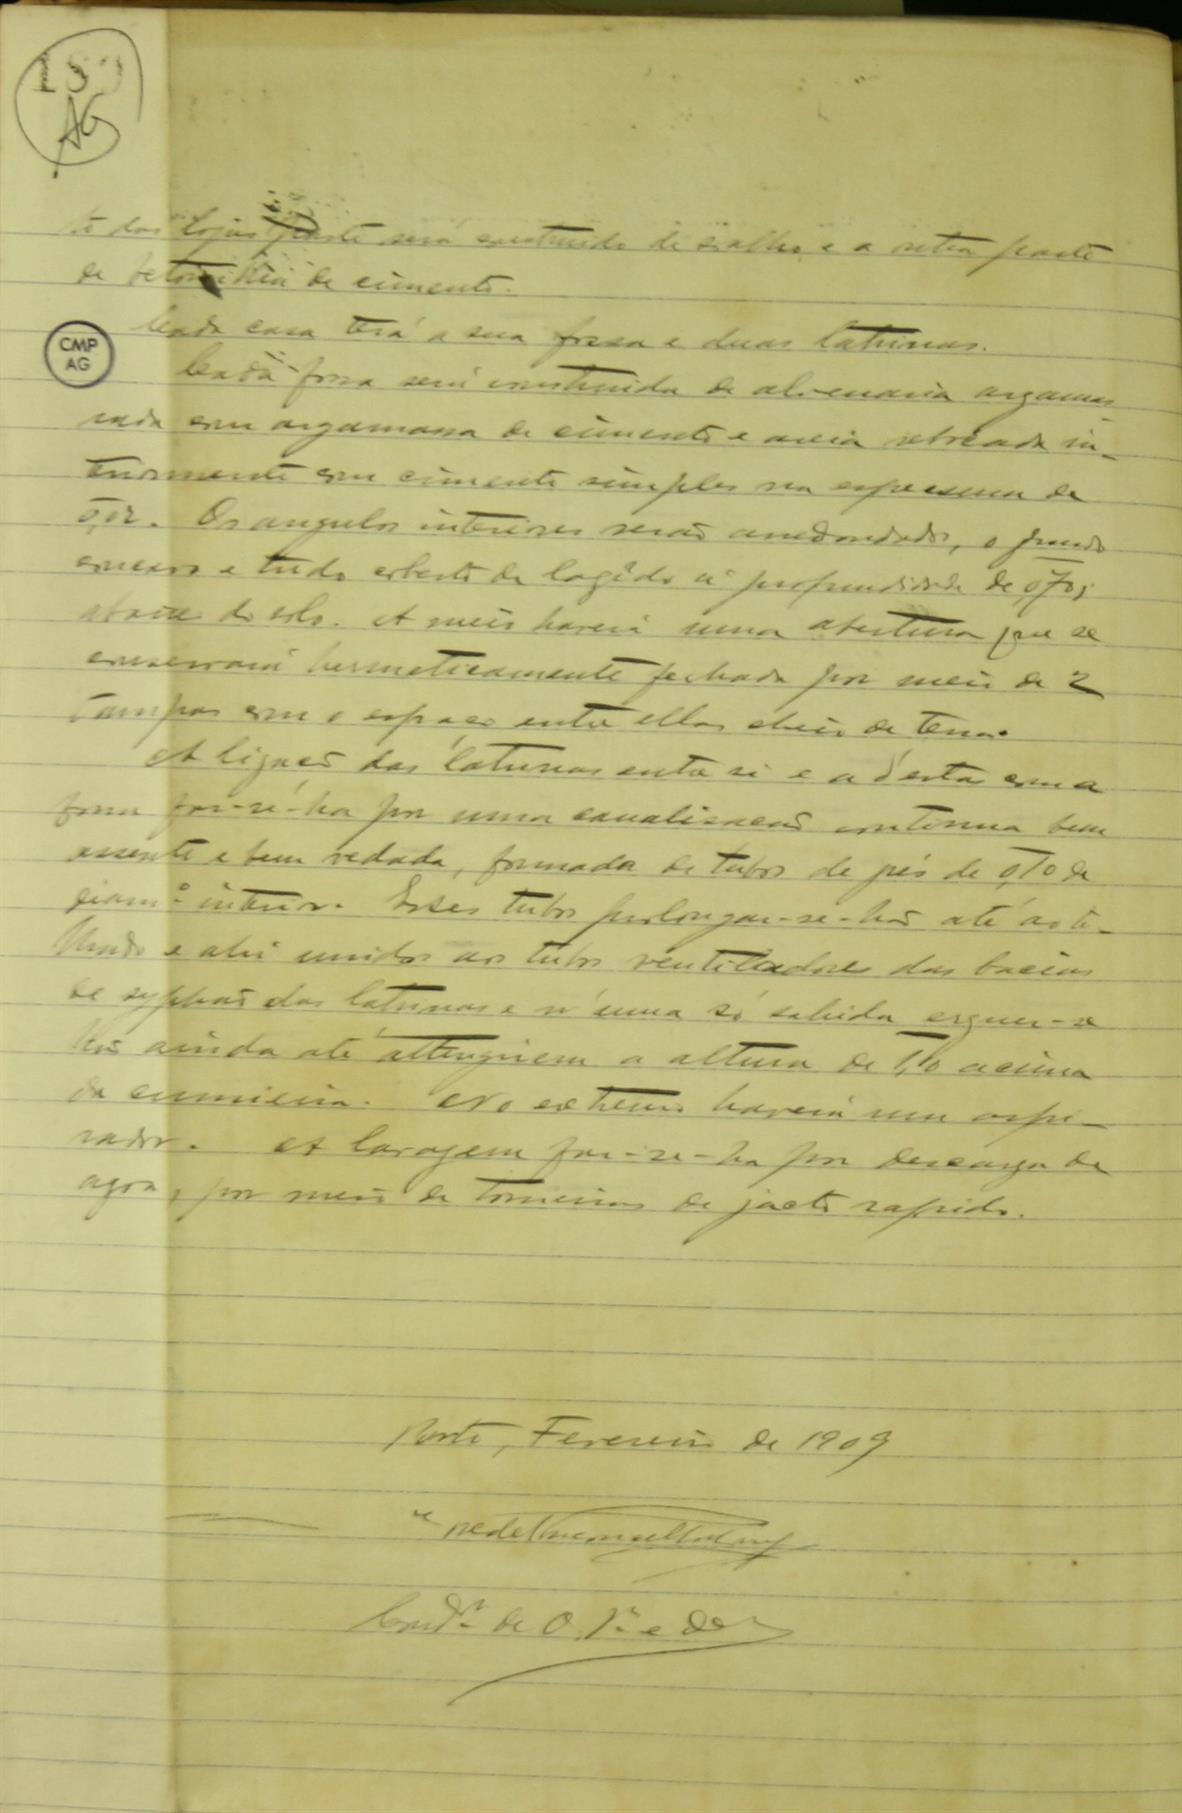 AG
to das lojas parte será construido de soalho e a outra parte
de betonilha de cimento.
Cada casa terá a sua fossa e duas latrinas.
CMP
AG
Cada fossa será construida de alvenaria argamas
sada com argamassa de cimento e areia rebocada in-
teriormente com cimento simples na espessura de
0,02. Os angulos interiores serão arredondados, o fundo
concavo e tudo coberto de lagêdo á profundidade de 0,70
abaixo do solo. A meio haverá uma abertura que se
conservará hermeticamente fechada por meio de 2
tampas com o espaço entre ellas cheio de terra.
A ligação das latrinas entre si e a d'estas com a
fossa far-se-ha por uma canalisação continua bem
assente e bem vedada, formada de tubos de grés de 0,10 de
diamº interior. Esses tubos prolongar-se-hão até ao te-
lhado e ahi unidos aos tubos ventiladores das bacias
de syphão das latrinas e n'uma só sahida erguer-se
hão ainda até attingirem a altura de 1,10 acima
da cumieira. No extremo haverá um aspi-
rador. A lavagem far-se-ha por descarga de
agoa, por meio de torneiras de jacto rapido.
Porto, Fevereiro de 1909
Condr de O. P. e